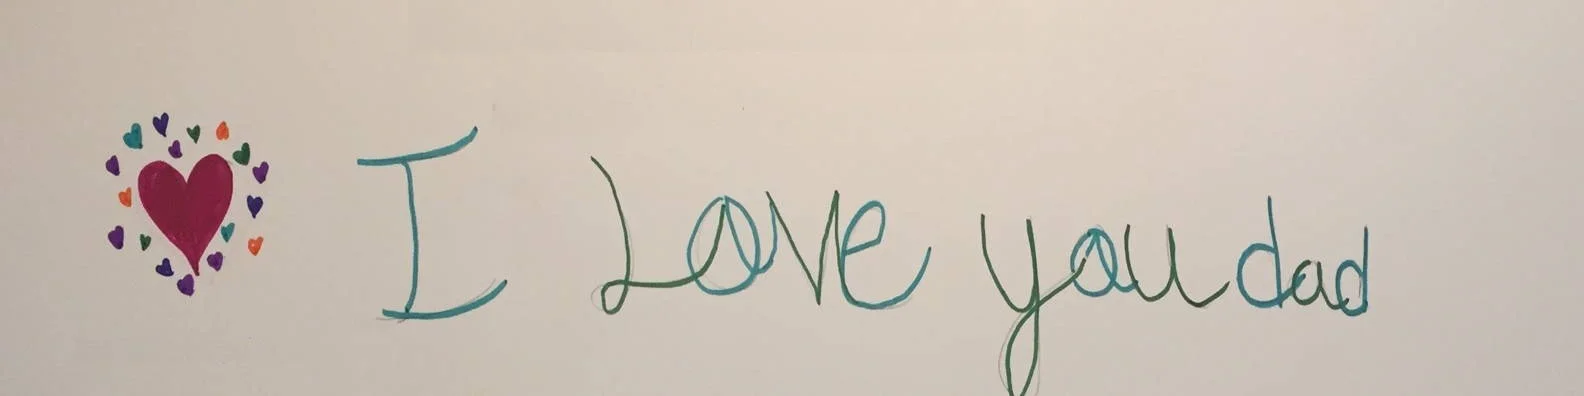 I Love you dad